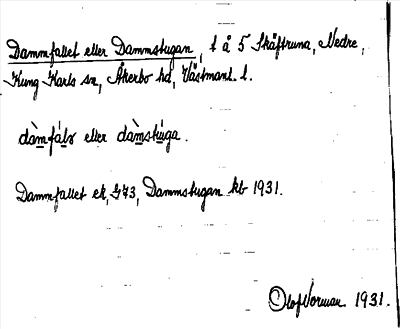 Dammfallet eller Dammstugan, t å 5 Skåftruna, Nedre,
Kung Karls sn, Åkerbo hd, Västmanl. l.
dàmfáls eller dàmstúga.
Dammfallet ek, 573, Dammstugan kb 1931.
Olof Norman 1931.